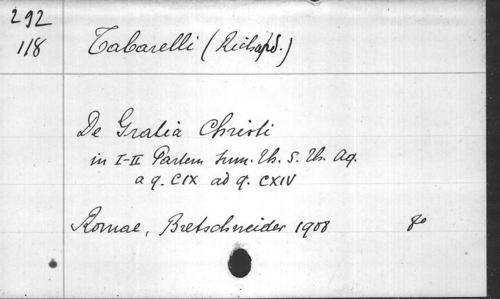 292
118
Tabarelli (Richard.)
De Gratia Christi
in I-II Partem Sum. Th. S. Th. Aq.
a q. CIX ad q. CXIV
Romae, Bretschneider 1908 8°